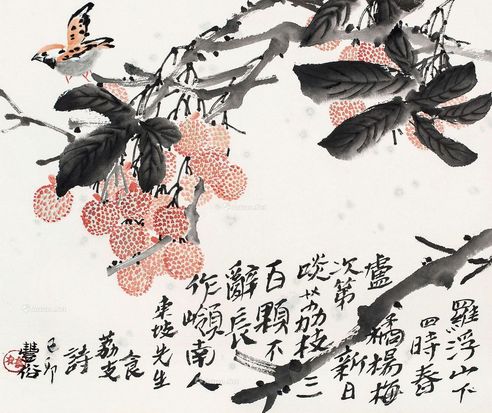 羅浮山下
四時春
盧橘楊梅
次第新日
啖荔枝三
百顆不
辭長
作嶺南人
東坡先生
食
荔支
詩
己卯
豐裕